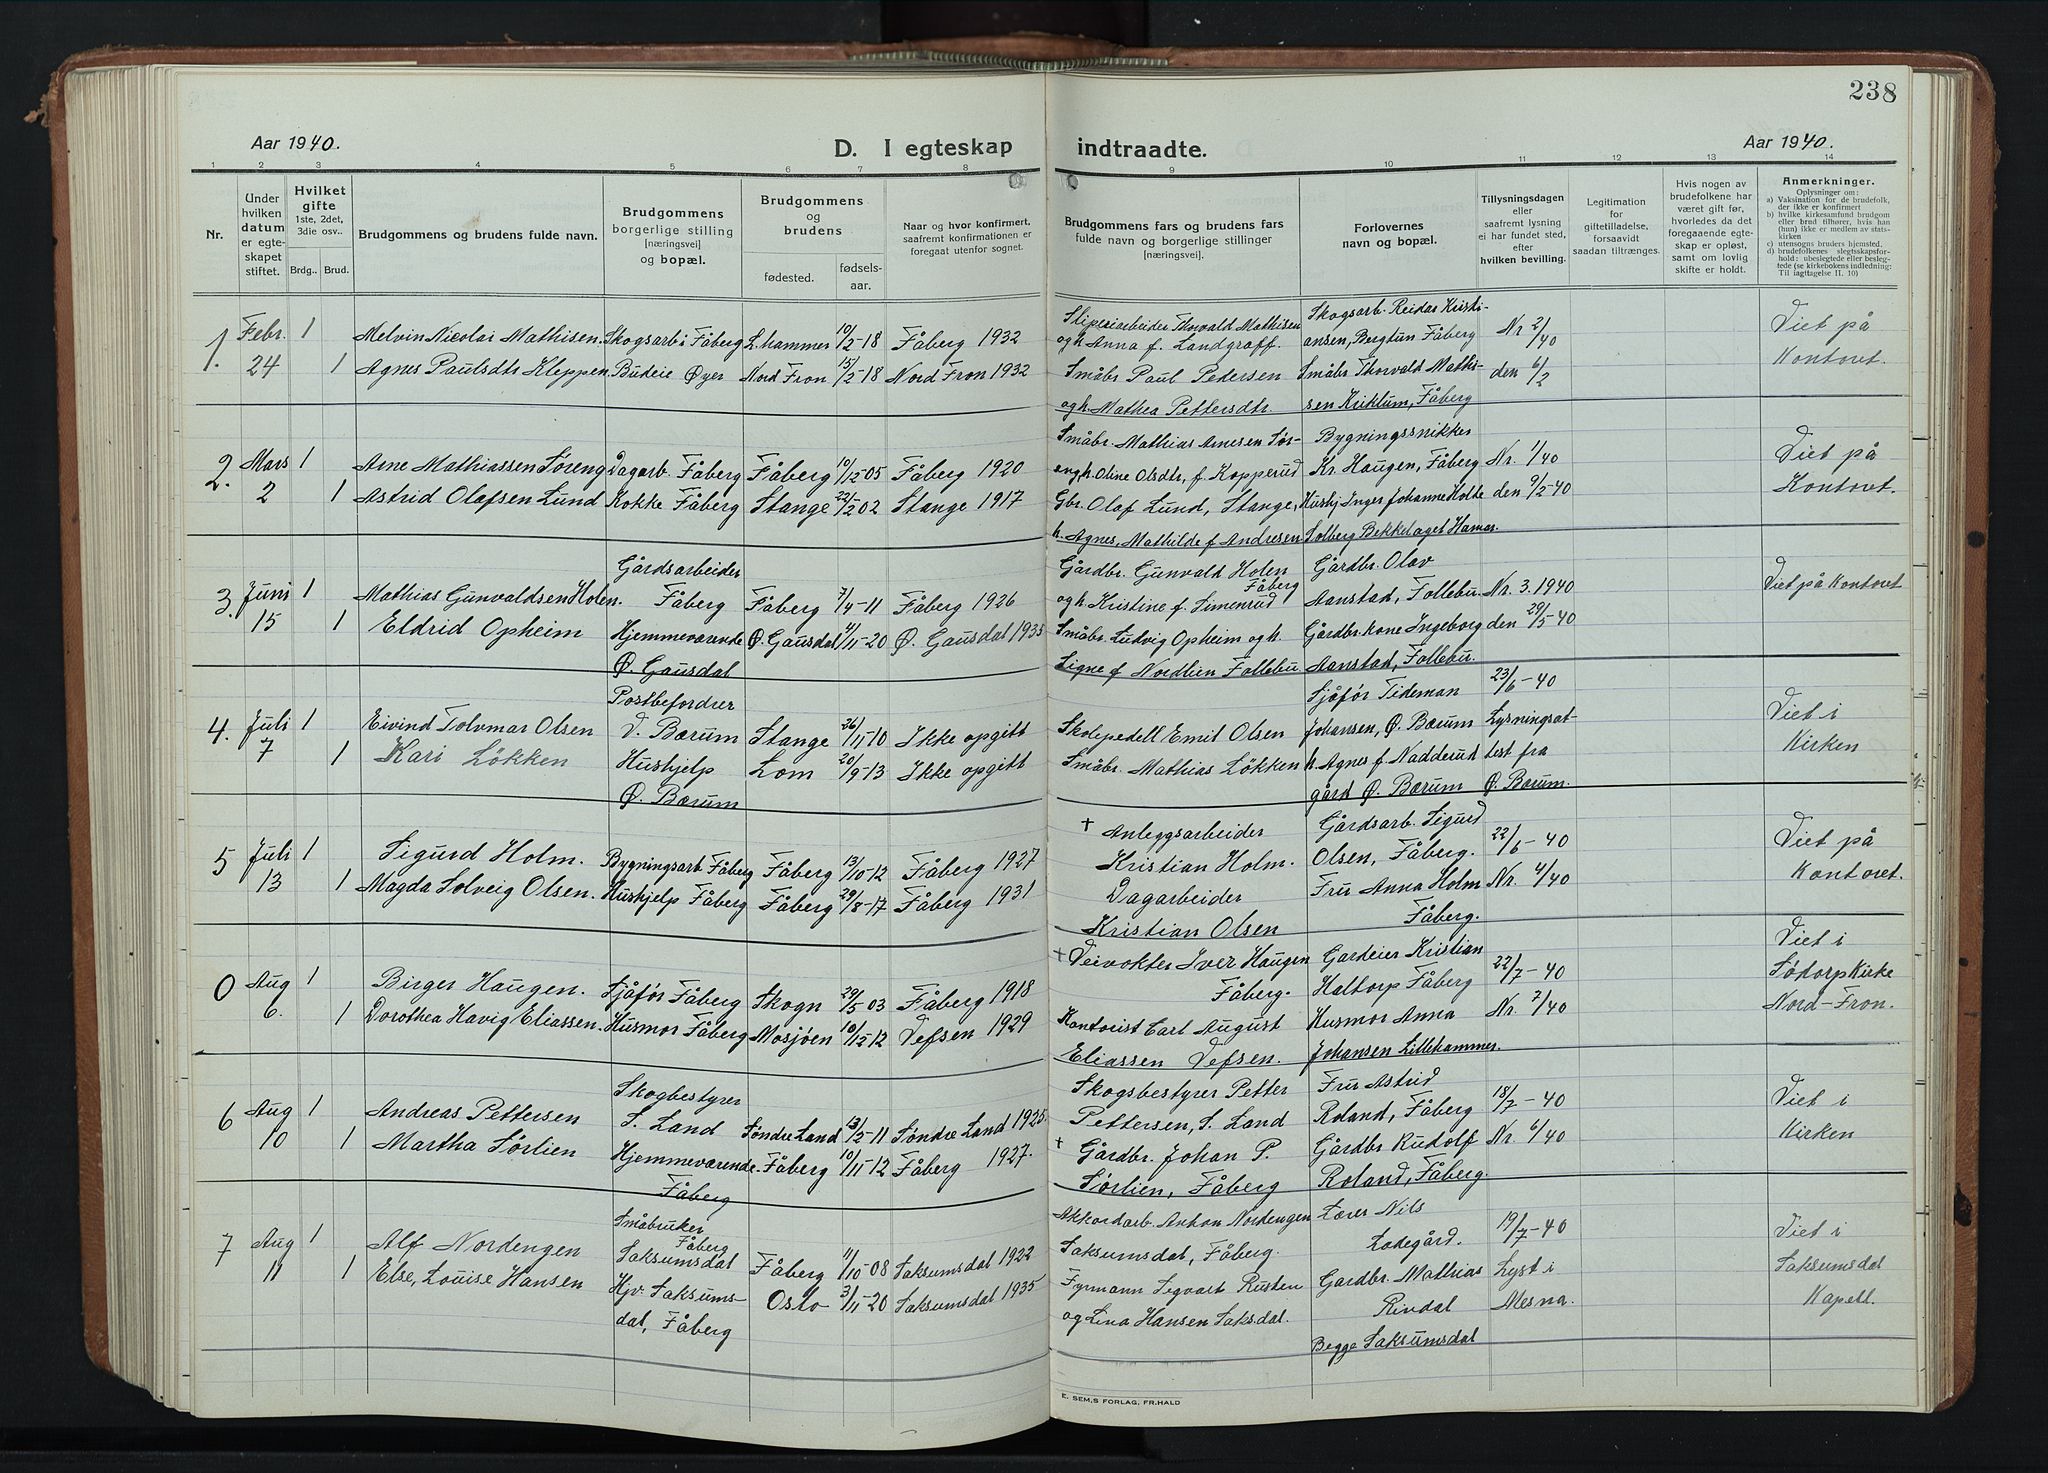 238
Aar 1940.
D. I egteskap
indtraadte.
Aar 1940.
1 2 3 4 5 6 7 8 9 10 11 12 13 14
Nr.
Under
hvilken
datum
er egte-
skapet
stiftet.
Hvilket
gifte
1ste, 2det,
3die osv..
Brdg..
Brud.
Brudgommens og brudens fulde navn.
Brudgommens
borgerlige stilling
[næringsvei]
og bopæl.
Brudgommens
og
brudens
fødested.
fødsels-
aar.
Naar og hvor konfirmert,
saafremt konfirmationen er
foregaat utenfor sognet.
Brudgommens fars og brudens fars
fulde navn og borgerlige stillinger
[næringsvei].
Forlovernes
navn og bopæl.
Tillysningsdagen
eller
saafremt lysning
ei har fundet sted,
efter
hvilken bevilling.
Legitimation
for
giftetilladelse,
forsaavidt
saadan tiltrænges.
Hvis nogen av
brudefolkene har
været gift før,
hvorledes da det
foregaaende egte-
skap er opløst,
samt om lovlig
skifte er holdt.
Anmerkninger.
Oplysninger om:
a) Vaksination for de brudefolk,
der ikke er konfirmert
b) hvilke kirkesamfund brudgom
eller brud tilhører, hvis han
(hun) ikke er medlem av stats-
kirken
c) utensogns bruders hjemsted.
d) brudefolkenes slegtsskapsfor-
hold: ubeslegtede eller besleg-
tede (se kirkebokens indledning:
Til iagttagelse II. 10)
1. Febr. 24
1
1
Melvin Nicolai Mathisen.
Agnes Paulsdtr Kleppen
Skogsarb i Fåberg
Budeie Øyer
L.hammer 10/2-18
Nord Fron 15/2-18
Fåberg 1932
Nord Fron 1932
Sliperiarbeider Thorvald Mathisen
og h. Anna f. Landgraff.
Småbr Paul Petersen
og h. Mathea Pettersdtr.
Skogsarb. Reidar Kristi-
ansen, Bergtun Fåberg
Småbr Thorvald Mathi-
sen Kriklum, Fåberg
Nr 2/40
den 6/2
Viet på
Kontoret.
2. Mars 2
1
1
Arne Mathiassen Søreng
Astrid Olafsen Lund
Dagarb. Fåberg
Kokke Fåberg
Fåberg 10/12-05
Stange 22/2 02
Fåberg 1920
Stange 1917
Småbr. Mathias Arnesen Sør-
eng h. Oline Olsdtr, f. Kopperud
Gbr. Olaf Lund, Stange,
h. Agnes, Mathilde f Andresen
Bygningssnikker
Kr. Haugen, Fåberg
Hushj Inger Johanne Holte
Solberg Bekkelaget Hamar.
Nr. 1/40
den 9/2-40
Viet på
Kontoret.
3. Juni 15
1
1
Mathias Gunvaldsen Holen.
Eldrid Opheim
Gårdsarbeider
Fåberg
Hjemmeværende
Ø. Gausdal
Fåberg 7/4-11
Ø. Gausdal 4/11-20
Fåberg 1926
Ø. Gausdal 1935
Gårdbr. Gunvald Holen
Fåberg
og h. Kristine f. Simenrud
Småbr. Ludvig Opheim og h.
Signe f Nordlien Follebu
Gårdbr. Olav
Aanstad, Follebu.
Gårdbr.kone Ingeborg
Aanstad, Follebu.
Nr. 3. 1940
den 29/5-40
Viet på Kontoret
4. Juli 7
1
1
Eivind Tolvmar Olsen
Kari Løkken
Postbefordrer
V. Bærum
Hushjelp
Ø. Bærum
Stange 26/11-10
Lom 20/9-13
Ikke opgitt
Ikke opgitt
Skolepedell Emil Olsen
Småbr. Mathias Løkken
Sjåfør Tideman
Johansen, Ø. Bærum
h. Agnes f. Nadderud
gård Ø. Bærum
23/6-40
Lysningsat-
test fra
Ø. Bærum.
Viet i
Kirken
5 Juli 13
1
1
Sigurd Holm.
Magda Solveig Olsen.
Bygningsarb Fåberg
Hushjelp Fåberg
Fåberg 13/10-12
Fåberg 29/8-17
Fåberg 1927
Fåberg 1931
† Anleggsarbeider
Kristian Holm.
Dagarbeider
Kristian Olsen
Gårdsarb. Sigurd
Olsen, Fåberg.
Fru Anna Holm
Fåberg.
22/6-40
Nr. 4/40
Viet på
Kontoret.
0 Aug 6.
1
1
Birger Haugen.
Dorothea Havig Eliassen.
Sjåfør Fåberg
Husmor Fåberg
Skogn 29/5 03
Mosjøen 10/12-12
Fåberg 1918
Vefsen 1929
† Veivokter Iver Haugen
Fåberg.
Kontorist Carl August
Eliassen Vefsen.
Gardeier Kristian
Haltorp Fåberg
Husmor Anna
Johansen Lillehammer.
22/7-40
Nr. 7/40
Viet i
Sødorp Kirke
Nord-Fron.
6 Aug 10
1
1
Andreas Pettersen
Martha Sørlien
Skogbestyrer
S. Land
Hjemmeværende.
Fåberg
Søndre Land 13/2-11
Fåberg 10/11-12
Søndre Land 1925.
Fåberg 1927.
Skogsbestyrer Petter
Pettersen, S. Land
† Gårdbr. Johan P.
Sørlien, Fåberg
Fru Astrid
Roland, Fåberg
Gårdbr Rudolf
Roland, Fåberg.
18/7-40
Nr. 6/40
Viet i
Kirken
7 Aug 11
1
1
Alf Nordengen
Else, Louise Hansen
Småbruker
Fåberg
Saksumsdal
Hjv. Saksums-
dal, Fåberg
Fåberg 11/10-08
Oslo 3/11-20
Saksumsdal 1922
Saksumsdal 1935
Akkordarb. Anton Nordengen
Saksumsdal, Fåberg.
Fyrmann Segvart Rusten
og Lina Hansen Saksdal.
Lærer Nils
Lodegård.
Gardbr. Mathias
Rindal
Begge Saksumsdal
19/7-40
Lyst i
Mesna.
Viet i
Saksumsdal
Kapell.
E. SEM,S FORLAG, FR.HALD